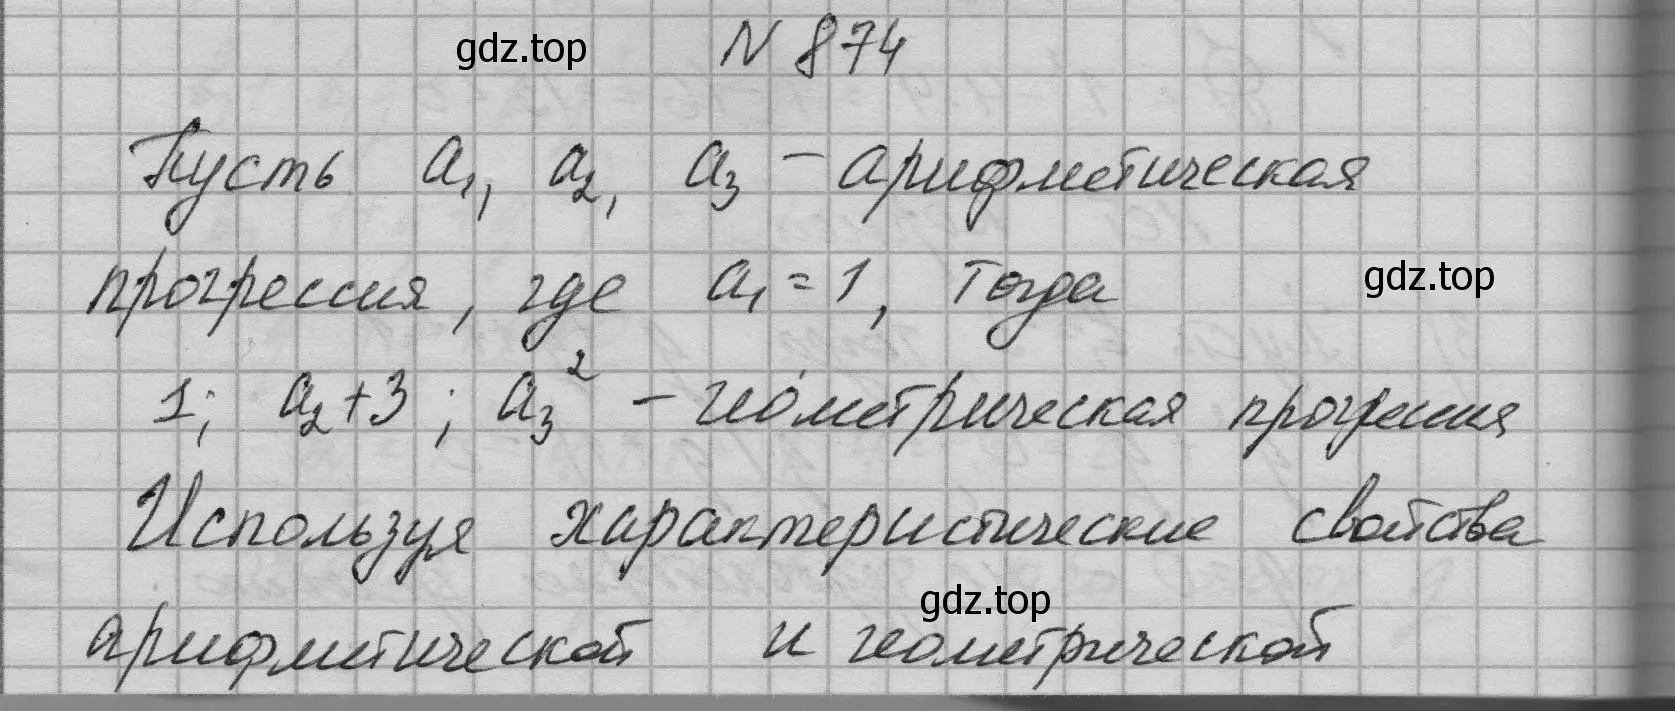 gdz.top N 874
Пусть a₁, a₂, a₃ - арифметическая
прогрессия, где a₁ = 1, тогда gdz.top
1; a₂+3; a₃² - геометрическая прогрессия
Используя характеристические свойства
gdz.top
арифметической и геометрической